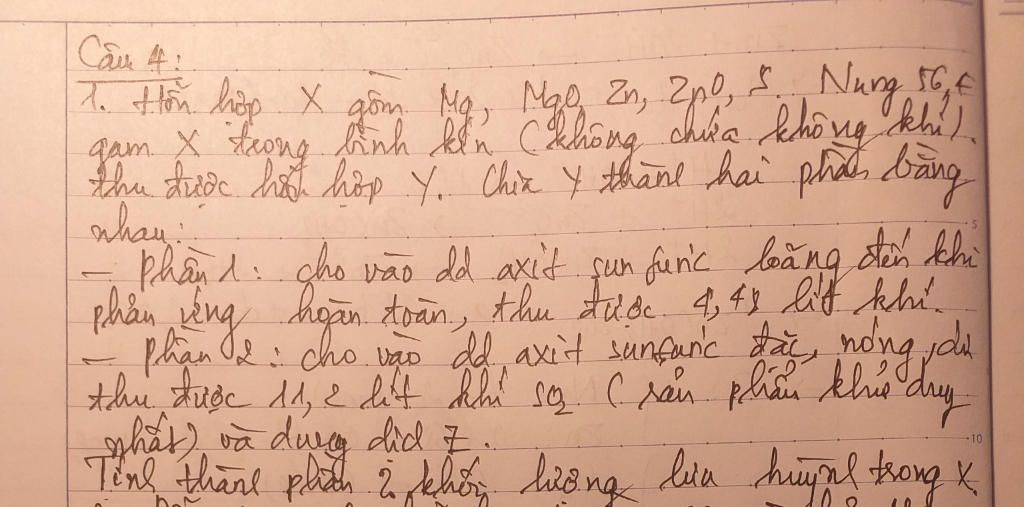 Câu 4:
1. Hỗn hợp X gồm Mg, MgO, Zn, ZnO, S. Nung 56,4
gam X trong bình kín (không chứa không khí)
thu được hỗn hợp Y. Chia Y thành hai phần bằng
nhau:
- Phần 1: cho vào dd axit sunfuric loãng đến khi
phản ứng hoàn toàn, thu được 4,48 lít khí.
- Phần 2: cho vào dd axit sunfuric đặc, nóng, dư
thu được 11,2 lít khí SO2 (sản phẩm khử duy
nhất) và dung dịch Z.
Tính thành phần % khối lượng lưu huỳnh trong X.